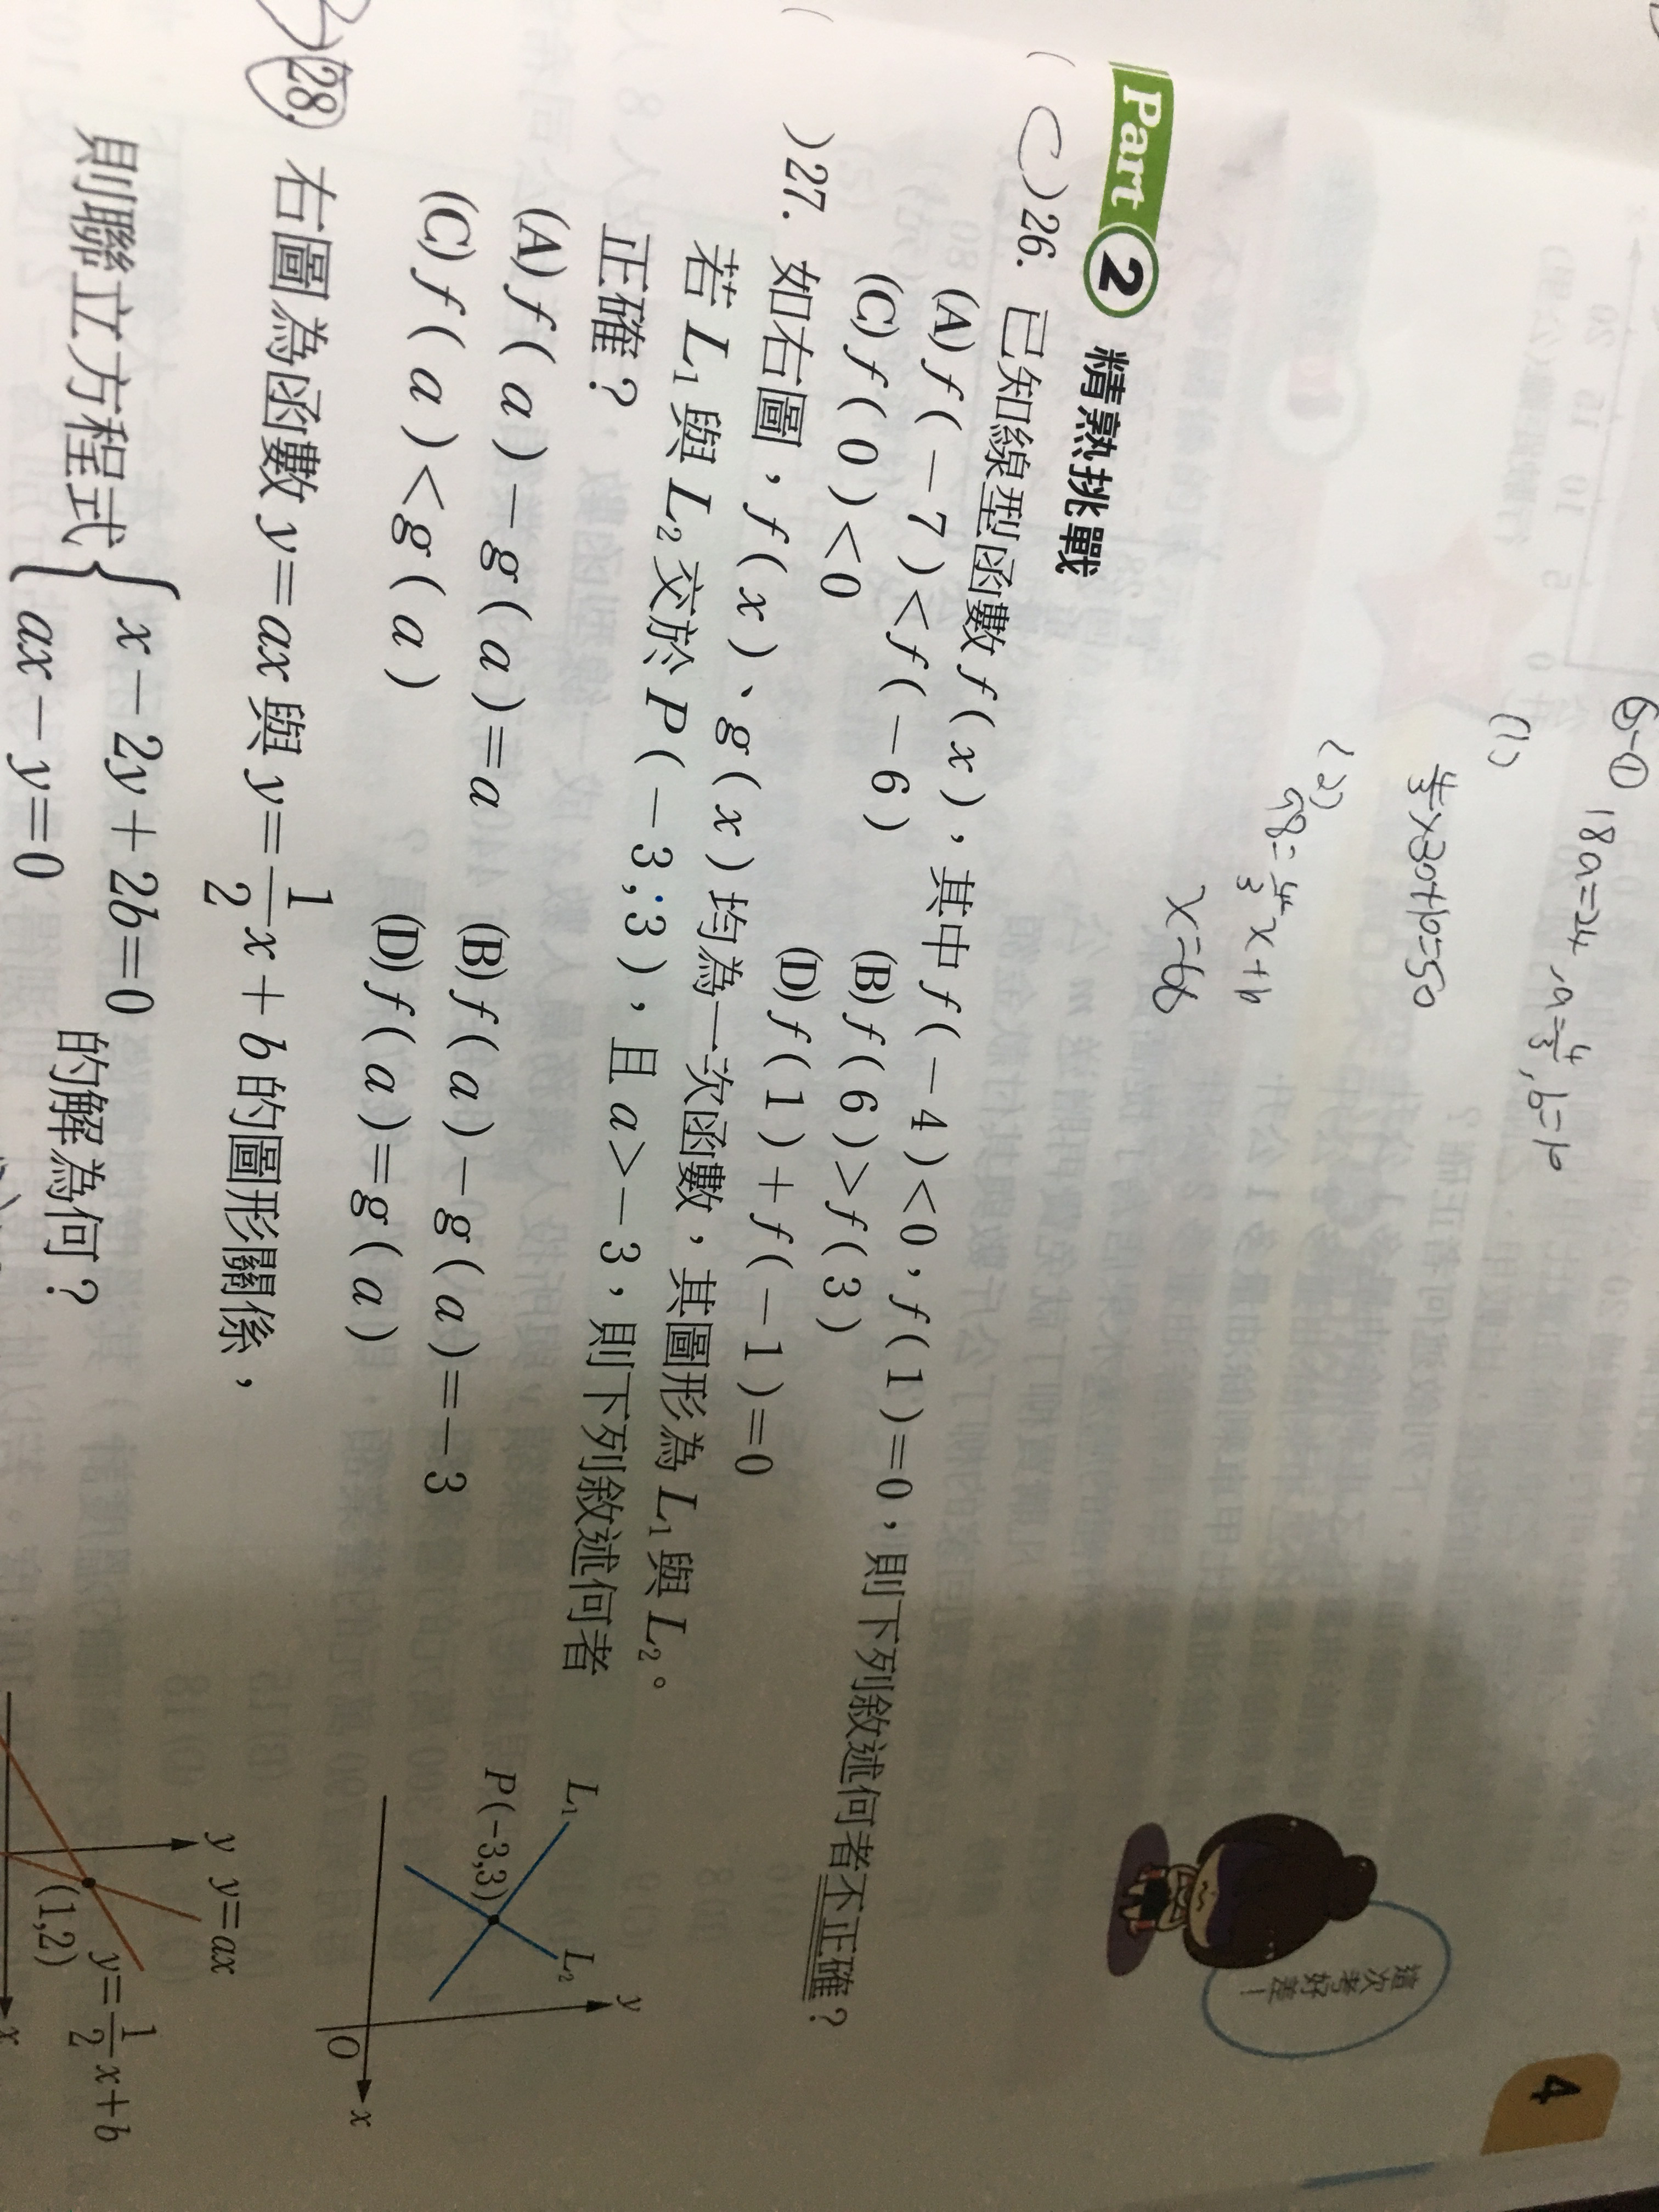 ⑥-① 18a=24, a=4/3, b=10
(1)
4/3×30+10=50
(2)
98=4/3x+10
x=66
4
這次考好差！
Part 2 精熟挑戰
( C )26. 已知線型函數 f(x)，其中 f(-4)<0，f(1)=0，則下列敘述何者不正確？
(A) f(-7)<f(-6) (B) f(6)>f(3)
(C) f(0)<0 (D) f(1)+f(-1)=0
( )27. 如右圖，f(x)、g(x)均為一次函數，其圖形為 L₁與 L₂。
若 L₁與 L₂交於 P(-3,3)，且 a>-3，則下列敘述何者
正確？
(A) f(a)-g(a)=a (B) f(a)-g(a)=-3
(C) f(a)<g(a) (D) f(a)=g(a)
L₁ L₂ y
P(-3,3)
O x
28. 右圖為函數 y=ax 與 y=1/2x+b 的圖形關係，
則聯立方程式{x-2y+2b=0
ax-y=0 的解為何？
y y=ax
y=1/2x+b
(1,2)
x